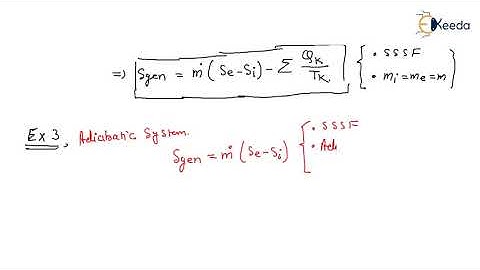 Ekeeda
=> Sgen = ṁ (Se - Si) - Σ Q̇K/TK { • SSSF
• ṁi = ṁe = ṁ }
Ex 3, Adiabatic System.
Sgen = ṁ (Se - Si) { • SSSF
• Adi